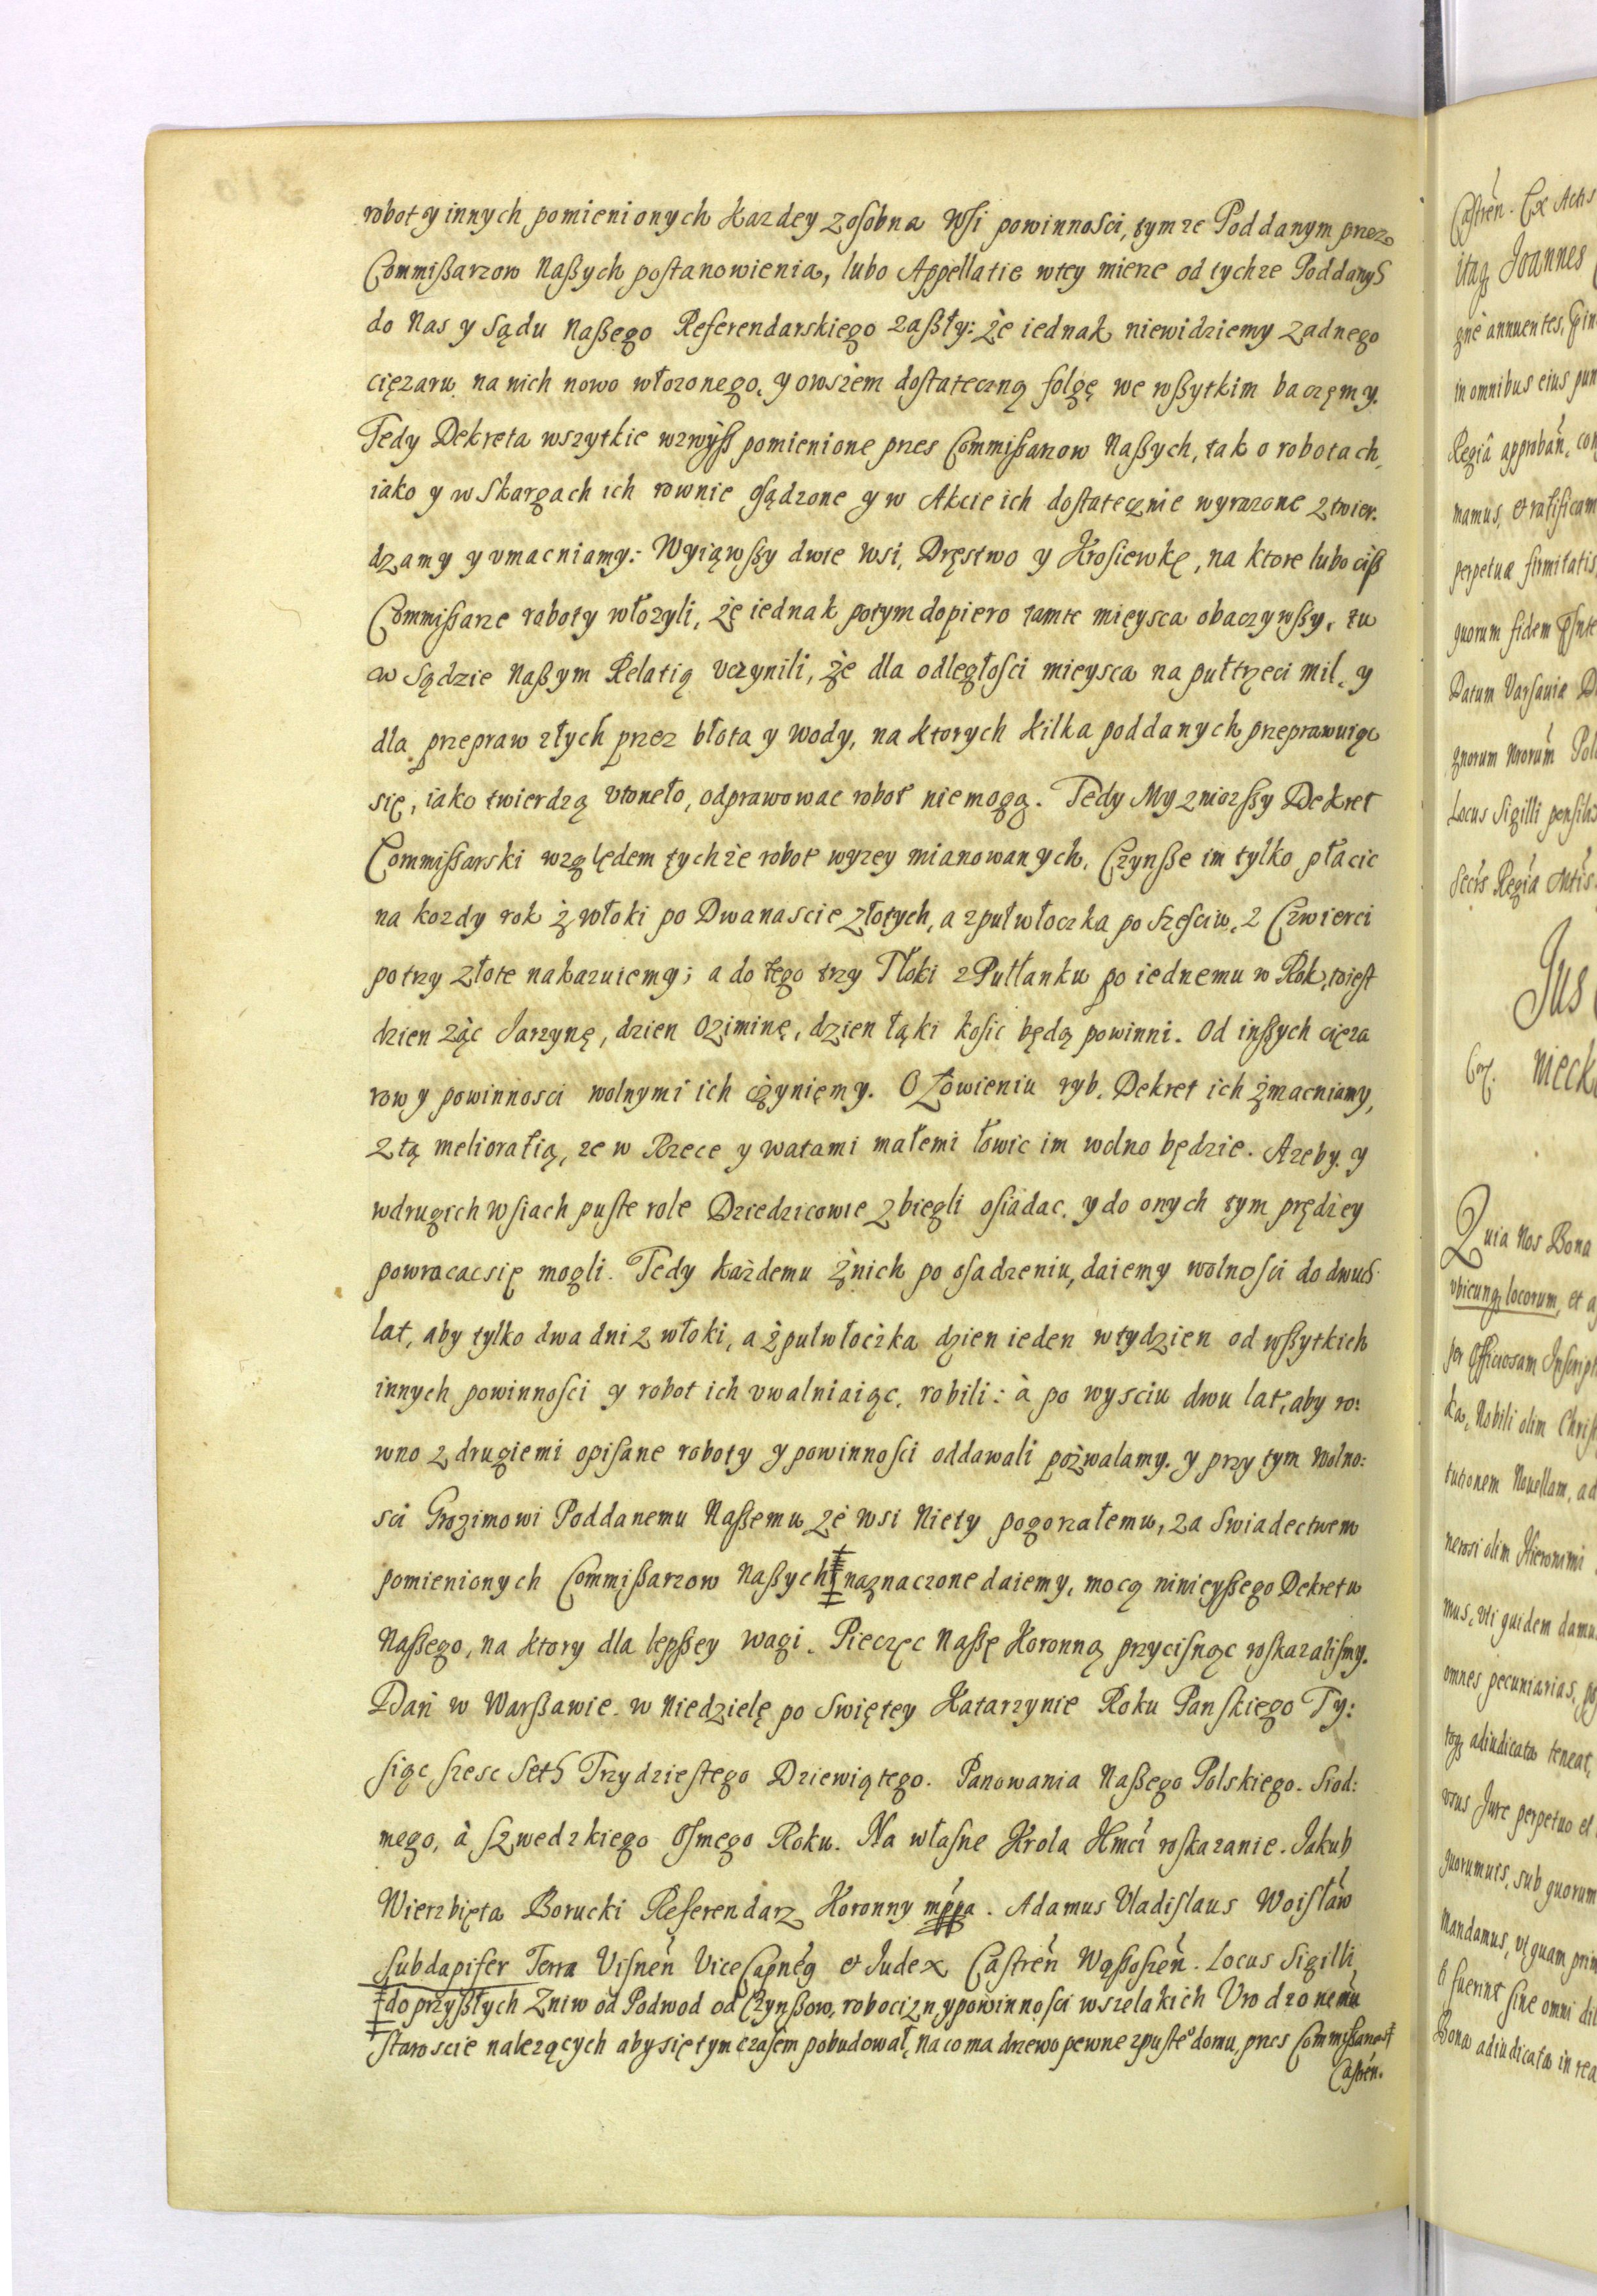 robot y innych pomienionych każdey zosobna Wsi powinnosci, tymze Poddanym przez
Commißarzow Naßych postanowienia, lubo Appellatie wtey mierze od tychze Poddanych
do Nas y Sądu Naßego Referendarskiego zaßły: że iednak niewidziemy zadnego
cięzaru na nich nowo włozonego, y owszem dostateczną folgę we wßytkim baczęmy.
Tedy Dekreta wszytkie wzwyß pomienione przes Commißarzow Naßych, tak o robotach,
iako y w Skargach ich rownie osądzone y w Akcie ich dostatecznie wyrazone ztwier.
dzamy y vmacniamy: Wyiąwßy dwie wsi, Dręstwo y Krosiewkę, na ktore lubo ciß
Commißarze roboty włozyli, żę iednak potym dopiero tamte mieysca obaczywßy, tu
w Sądzie Naßym Relatią vczynili, że dla odległosci mieysca na pułtrzeci mil, y
dla przepraw złych przez błota y wody, na ktorych kilka poddanych przeprawuiąc
się, iako twierdzą vtoneło, odprawowac robot niemogą. Tedy My zniozßy Dekret
Commißarski względem tychże robot wyzey mianowanych, Czynße im tylko płacic
na kozdy rok żwłoki po Dwanascie złotych, a zpułwłoczka po szesciu, z Czwierci
po trzy złote nakazuiemy; a do tego trzy Tłoki z Putłanku po iednemu w Rok, toiest
dzien żąc Jarzynę, dzien Oziminę, dzien łąki kosic będą powinni. Od inßych cięza
row y powinnosci wolnymi ich czyniemy. O Łowieniu ryb. Dekret ich żmacniamy,
z tą melioratią, ze w Rzece y watami małemi łowic im wolno będzie. Azeby y
wdrugich wsiach puste role Dziedzicowie zbiegli osiadac, y do onych tym prędzey
powracac się mogli. Tedy każdemu żnich po osadzeniu, daiemy wolnosci do dwuch
lat, aby tylko dwa dni z włoki, a żpułwłoczka dzien ieden wtydzien od wßytkich
innych powinnosci y robot ich vwalniaiąc, robili: à po wysciu dwu lat, aby ro:
wno z drugiemi opisane roboty y powinnosci oddawali pożwalamy. y przy tym wolno:
sci Grozimowi Poddanemu Naßemu że wsi Niety pogorzałemu, za Swiadectwem
pomienionych Commißarzow Naßych ǂ naznaczone daiemy, mocą ninieyßego Dekretu
Naßego, na ktory dla lepßey wagi. Pieczęc Naßę Koronną przycisnąc roskazalismy.
Dań w Warßawie. w Niedzielę po Swiętey Katarzynie Roku Panskiego Ty:
siąc szesc Seth Trzydziestego Dziewiątego. Panowania Naßego Polskiego. Siod:
mego, à szwedzkiego Osmego Roku. Na własne Krola Jmći roskazanie. Jakub
Wierzbięta Borucki Referendarz Koronny mppa. Adamus Vladislaus Woisław
Subdapifer Terra Visneń ViceCapneg et Judex Castreń Wąßoszeń. Locus Sigilli,
ǂ do przyßłych Zniw od Podwod od Czynßow, robocizn, y powinnosci wszelakich Vrodzonemu
Staroscie nalezących aby się tym czasem pobudował, na co ma drzewo pewne zpuste° domu, przes Commißarzow ǂ
Castreń.
Castreń. Ex Actis
itaq Joannes
gnè annuentes,
in omnibus eius pun
Regiâ approbań, con
mamus, et ratificam
perpetuæ firmitatis
quorum fidem
Datum Varsaviæ D
gnorum Nrorum Pol
Locus Sigilli pensilis
Jus
nieck
Quia Nos Bona
vbicunq locorum, et a
per Officiosam Inscript
ka, Nobili olim Christ
tutionem Novellam, ad
nerosi olim Hieronimi
mus, vti quidem damu
omnes pecuniarias,
adiudicata teneat,
vrus Jure perpetuo et
quorumvis, sub quorum
Mandamus, vt quam prim
ti fuerint sine omni dil
Bona adiudicata in rea